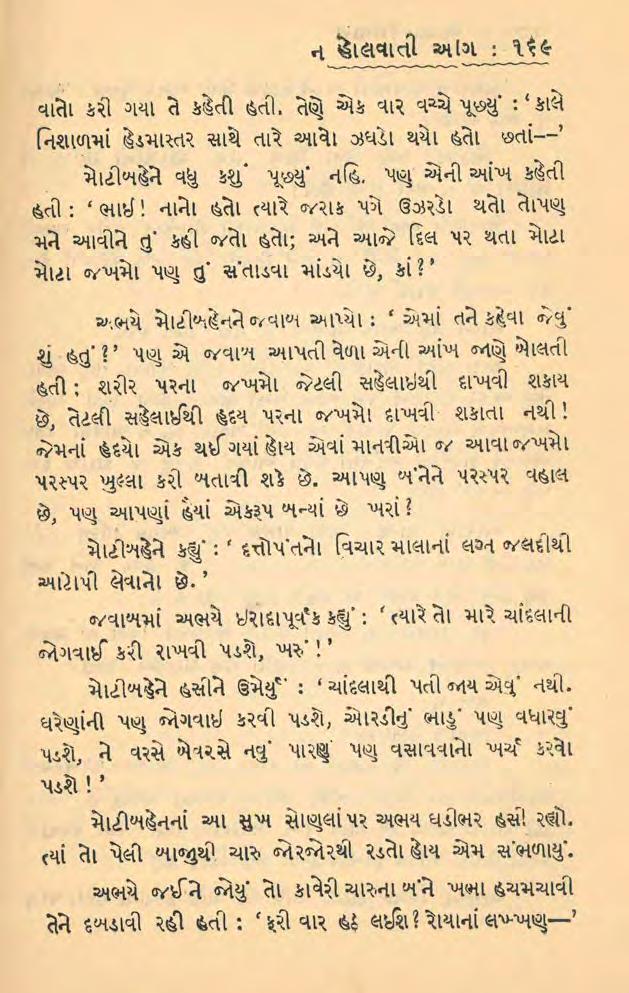 ન હોલવાતી આગ : ૧૬૯
વાતો કરી ગયા તે કહેતી હતી. તેણે એક વાર વચ્ચે પૂછ્યું : ‘કાલે
નિશાળમાં હેડમાસ્તર સાથે તારે આવો ઝઘડો થયો હતો છતાં--’
મોટીબહેને વધુ કશું પૂછ્યું નહિ. પણ એની આંખ કહેતી
હતી : ‘ ભાઈ! નાનો હતો ત્યારે જરાક પગે ઉઝરડો થતો તોપણ
મને આવીને તું કહી જતો હતો; અને આજે દિલ પર થતા મોટા
મોટા જખમો પણ તું સંતાડવા માંડયો છે, કાં?’
અભયે મોટીબહેનને જવાબ આપ્યો : ‘ એમાં તને કહેવા જેવું
શું હતું?’ પણ એ જવાબ આપતી વેળા એની આંખ જાણે બોલતી
હતી ; શરીર પરના જખમો જેટલી સહેલાઇથી દાખવી શકાય
છે, તેટલી સહેલાઈથી હૃદય પરના જખમો દાખવી શકાતા નથી!
જેમનાં હૃદયો એક થઈ ગયાં હોય એવાં માનવીઓ જ આવા જખમો
પરસ્પર ખુલ્લા કરી બતાવી શકે છે. આપણ બંનેને પરસ્પર વહાલ
છે, પણ આપણાં હૈયાં એકરૂપ બન્યાં છે ખરાં?
મોટીબહેને કહ્યું : ‘ દત્તોપંતનો વિચાર માલાનાં લગ્ન જલદીથી
આટોપી લેવાનો છે.’
જવાબમાં અભયે ઇરાદાપૂર્વક કહ્યું : ‘ત્યારે તો મારે ચાંદલાની
જોગવાઈ કરી રાખવી પડશે, ખરું!’
મોટીબહેને હસીને ઉમેર્યું : ‘ચાંદલાથી પતી જાય એવું નથી.
ઘરેણાંની પણ જોગવાઇ કરવી પડશે, ઓરડીનું ભાડું પણ વધારવું
પડશે, ને વરસે બેવરસે નવું પારણું પણ વસાવવાનો ખર્ચ કરવો
પડશે !’
મોટીબહેનનાં આ સુખ સોણલાં પર અભય ઘડીભર હસી રહ્યો.
ત્યાં તો પેલી બાજુથી ચારુ જોરજોરથી રડતો હોય એમ સંભળાયું.
અભયે જઈને જોયું તો કાવેરી ચારુના બંને ખભા હચમચાવી
તેને દબડાવી રહી હતી : ‘ફરી વાર હઠ્ઠ લઈશ? રોયાનાં લખ્ખણ—’